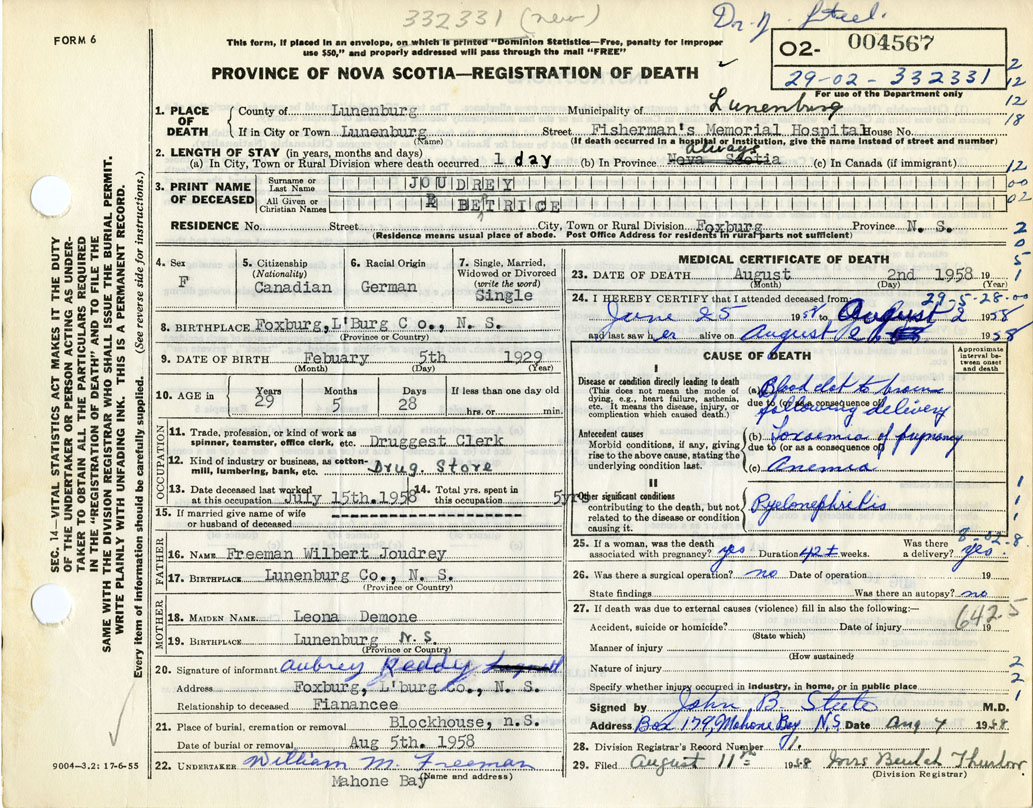 332331 (new)
Dr. J. Steel.
FORM 6
This form, if placed in an envelope, on which is printed "Dominion Statistics—Free, penalty for improper
use $50," and properly addressed will pass through the mail "FREE"
02- 004567
29-02-332331
For use of the Department only
PROVINCE OF NOVA SCOTIA—REGISTRATION OF DEATH
2
12
12
18
12
00
02
2
0
5
1
1. PLACE OF DEATH
County of Lunenburg Municipality of Lunenburg
If in City or Town Lunenburg Street Fisherman's Memorial Hospital House No.
(Name) (If death occurred in a hospital or institution, give the name instead of street and number)
2. LENGTH OF STAY (in years, months and days)
always
(a) In City, Town or Rural Division where death occurred 1 day (b) In Province Nova Scotia (c) In Canada (if immigrant)
3. PRINT NAME OF DECEASED
Surname or Last Name JOUDREY
All Given or Christian Names R BETRICE
RESIDENCE No. Street City, Town or Rural Division Foxburg Province N. S.
(Residence means usual place of abode. Post Office Address for residents in rural parts not sufficient)
4. Sex
F
5. Citizenship
(Nationality)
Canadian
6. Racial Origin
German
7. Single, Married,
Widowed or Divorced
(write the word)
Single
8. BIRTHPLACE Foxburg, L'Burg C o., N. S.
(Province or Country)
9. DATE OF BIRTH Febuary 5th 1929
(Month) (Day) (Year)
10. AGE in
Years 29
Months 5
Days 28
If less than one day old
hrs. or min.
OCCUPATION
11. Trade, profession, or kind of work as
spinner, teamster, office clerk, etc. Druggest Clerk
12. Kind of industry or business, as cotton-
mill, lumbering, bank, etc. Drug. Store
13. Date deceased last worked
at this occupation July 15th. 1958
14. Total yrs. spent in
this occupation 5yrs
15. If married give name of wife
or husband of deceased
FATHER
16. NAME Freeman Wilbert Joudrey
17. BIRTHPLACE Lunenburg Co., N. S.
(Province or Country)
MOTHER
18. MAIDEN NAME Leona Demone
19. BIRTHPLACE Lunenburg N. S.
(Province or Country)
20. Signature of informant Aubrey Reddy
Address Foxburg, L'burg Co., N. S.
Relationship to deceased Fianancee
21. Place of burial, cremation or removal Blockhouse, n.S.
Date of burial or removal Aug 5th. 1958
22. UNDERTAKER William M. Freeman
Mahone Bay (Name and address)
MEDICAL CERTIFICATE OF DEATH
23. DATE OF DEATH August 2nd 1958 19
(Month) (Day) (Year)
29-5-28-00
24. I HEREBY CERTIFY that I attended deceased from:
June 25 1958 to August 2 1958
and last saw her alive on August 2 1958
CAUSE OF DEATH
Approximate interval between onset and death
I
Disease or condition directly leading to death
(This does not mean the mode of dying, e.g., heart failure, asthenia, etc. It means the disease, injury, or complication which caused death.)
(a) Blood clot to brain
due to (or as a consequence of)
following delivery
Antecedent causes
Morbid conditions, if any, giving rise to the above cause, stating the underlying condition last.
(b) Toxaemia of pregnancy
due to (or as a consequence of)
(c) Anemia
II
Other significant conditions
contributing to the death, but not related to the disease or condition causing it.
Pyelonephritis
25. If a woman, was the death
associated with pregnancy? yes Duration 42+ weeks.
Was there
a delivery? yes.
26. Was there a surgical operation? no Date of operation 19
State findings Was there an autopsy? no
27. If death was due to external causes (violence) fill in also the following:—
642.5
Accident, suicide or homicide? Date of injury 19
(State which)
Manner of injury
(How sustained)
Nature of injury
Specify whether injury occurred in industry, in home, or in public place
Signed by John B. Steele M.D.
Address Box 179, Mahone Bay N.S. Date Aug 7 1958
28. Division Registrar's Record Number 71.
29. Filed August 11th 1958 Mrs Beulah Thurlow
(Division Registrar)
9004-3.2: 17-6-55
SEC. 14—VITAL STATISTICS ACT MAKES IT THE DUTY
OF THE UNDERTAKER OR PERSON ACTING AS UNDER-
TAKER TO OBTAIN ALL THE PARTICULARS REQUIRED
IN THE "REGISTRATION OF DEATH" AND TO FILE THE
SAME WITH THE DIVISION REGISTRAR WHO SHALL ISSUE THE BURIAL PERMIT.
WRITE PLAINLY WITH UNFADING INK. THIS IS A PERMANENT RECORD.
Every item of information should be carefully supplied. (See reverse side for instructions.)